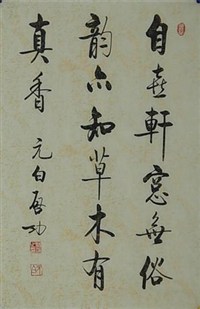 自喜軒窓無俗
韵亦知草木有
真香 元白启功